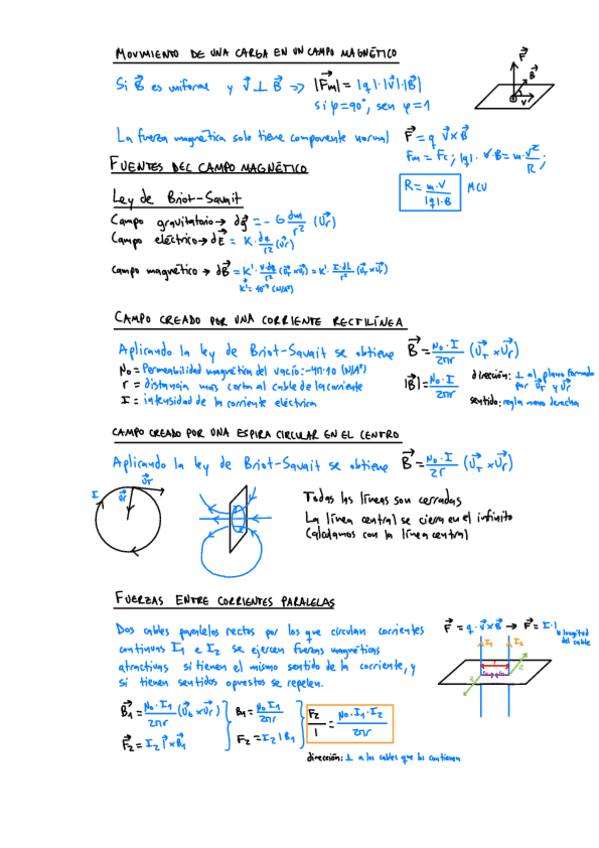 MOVIMIENTO DE UNA CARGA EN UN CAMPO MAGNÉTICO
Si B⃗ es uniforme y v⃗ ⊥ B⃗ => |F⃗m| = |q|·|v⃗|·|B⃗|
si φ=90°, sen φ=1
F⃗
B⃗
v⃗
La fuerza magnética solo tiene componente normal F⃗ = q v⃗xB⃗
Fm = Fc; |q|·v·B = m·v²/R;
R = m·v/|q|·B MCU
FUENTES DEL CAMPO MAGNÉTICO
Ley de Briot-Savait
Campo gravitatorio → dg⃗ = -G dm/r² (u⃗r)
Campo eléctrico → dE⃗ = K·dq/r² (u⃗r)
Campo magnético → dB⃗ = K'·v·dq/r² (u⃗t x u⃗r) = K'·I·dl/r² (u⃗t x u⃗r)
K' = 10⁻⁷ (N/A²)
CAMPO CREADO POR UNA CORRIENTE RECTILÍNEA
Aplicando la ley de Briot-Savait se obtiene B⃗ = N₀·I/2πr (U⃗T x U⃗r)
N₀ = Permeabilidad magnética del vacío: -4π·10 (N/A²)
r = distancia más corta al cable de la corriente
I = intensidad de la corriente eléctrica
|B⃗| = N₀·I/2πr
dirección: ⊥ al plano formado por U⃗T y U⃗r
sentido: regla mano derecha
CAMPO CREADO POR UNA ESPIRA CIRCULAR EN EL CENTRO
Aplicando la ley de Briot-Savait se obtiene B⃗ = N₀·I/2r (U⃗T x U⃗r)
I
Todas las líneas son cerradas
La línea central se cierra en el infinito
Calculamos con la línea central
FUERZAS ENTRE CORRIENTES PARALELAS
Dos cables paralelos rectos por los que circulan corrientes
continuas I₁ e I₂ se ejercen fuerzas magnéticas
atractivas si tienen el mismo sentido de la corriente, y
si tienen sentidos opuestos se repelen.
F⃗ = q·v⃗xB⃗ → F⃗ = I·l
longitud del cable
I₁ I₂
B⃗₁ = N₀·I₁/2πr (U⃗t x U⃗r)
F⃗₂ = I₂ l⃗ x B⃗₁
B₁ = N₀ I₁/2πr
F₂ = I₂ l B₁
F₂/l = N₀·I₁·I₂/2πr
dirección: ⊥ a los cables que los contienen